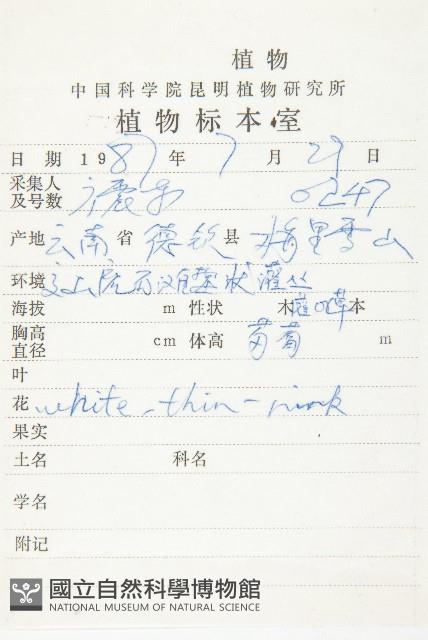 植物
中国科学院昆明植物研究所
植物标本室
日期 1987年 7月 29日
采集人
及号数 0247
产地 云南省 德钦县 梅里雪山
环境 灌丛
海拔 m 性状 木 草本
胸高
直径 cm 体高 m
叶
花 white-thin-pink
果实
土名 科名
学名
附记
國立自然科學博物館
NATIONAL MUSEUM OF NATURAL SCIENCE